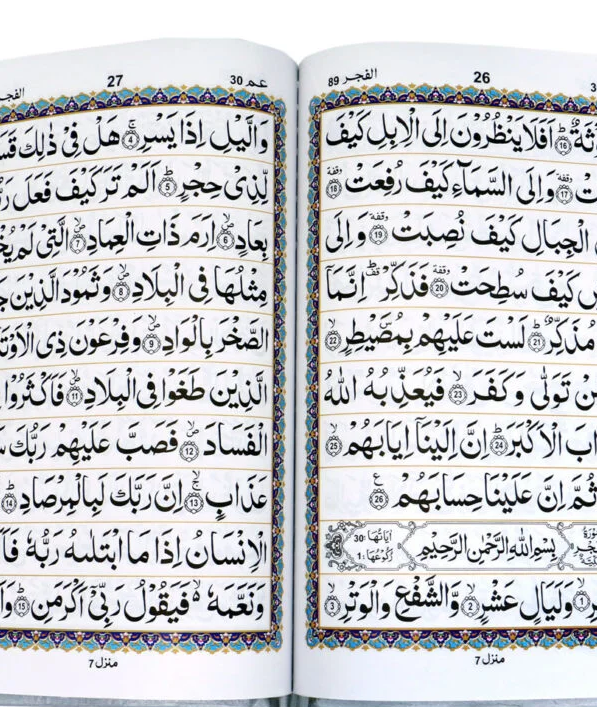 الفجر 89
26
3
ثةٌ ۝16 اَفَلَا يَنْظُرُوْنَ اِلَى الْاِبِلِ كَيْفَ
ت ۝17 وَاِلَى السَّمَآءِ كَيْفَ رُفِعَتْ ۝18
الْجِبَالِ كَيْفَ نُصِبَتْ ۝19 وَاِلَى
ضِ كَيْفَ سُطِحَتْ ۝20 فَذَكِّرْ اِنَّمَآ
مُذَكِّرٌ ۝21 لَسْتَ عَلَيْهِمْ بِمُصَۜيْطِرٍ ۝22
مَنْ تَوَلّٰى وَكَفَرَ ۝23 فَيُعَذِّبُهُ اللّٰهُ
ابَ الْاَكْبَرَ ۝24 اِنَّ اِلَيْنَاۤ اِيَابَهُمْ ۝25
ثُمَّ اِنَّ عَلَيْنَا حِسَابَهُمْ ۝26
اٰيَاتُهَا: 30 رُكُوْعُهَا: 1 بِسْمِ اللّٰهِ الرَّحْمٰنِ الرَّحِيْمِ
رِ ۝1 وَلَيَالٍ عَشْرٍ ۝2 وَّالشَّفْعِ وَالْوَتْرِ ۝3
منزل 7
الفجر
27
عم 30
وَالَّيْلِ اِذَا يَسْرِ ۝4 هَلْ فِيْ ذٰلِكَ قَسَ
لِّذِيْ حِجْرٍ ۝5 اَلَمْ تَرَ كَيْفَ فَعَلَ رَ
بِعَادٍ ۝6 اِرَمَ ذَاتِ الْعِمَادِ ۝7 الَّتِيْ لَمْ يُخْ
مِثْلُهَا فِي الْبِلَادِ ۝8 وَثَمُوْدَ الَّذِيْنَ جَ
الصَّخْرَ بِالْوَادِ ۝9 وَفِرْعَوْنَ ذِي الْاَوْتَ
الَّذِيْنَ طَغَوْا فِي الْبِلَادِ ۝11 فَاَكْثَرُوْا
الْفَسَادَ ۝12 فَصَبَّ عَلَيْهِمْ رَبُّكَ سَ
عَذَابٍ ۝13 اِنَّ رَبَّكَ لَبِالْمِرْصَادِ ۝14
الْاِنْسَانُ اِذَا مَا ابْتَلٰىهُ رَبُّهٗ فَاَ
وَنَعَّمَهٗ فَيَقُوْلُ رَبِّيْۤ اَكْرَمَنِ ۝15 وَاَ
منزل 7